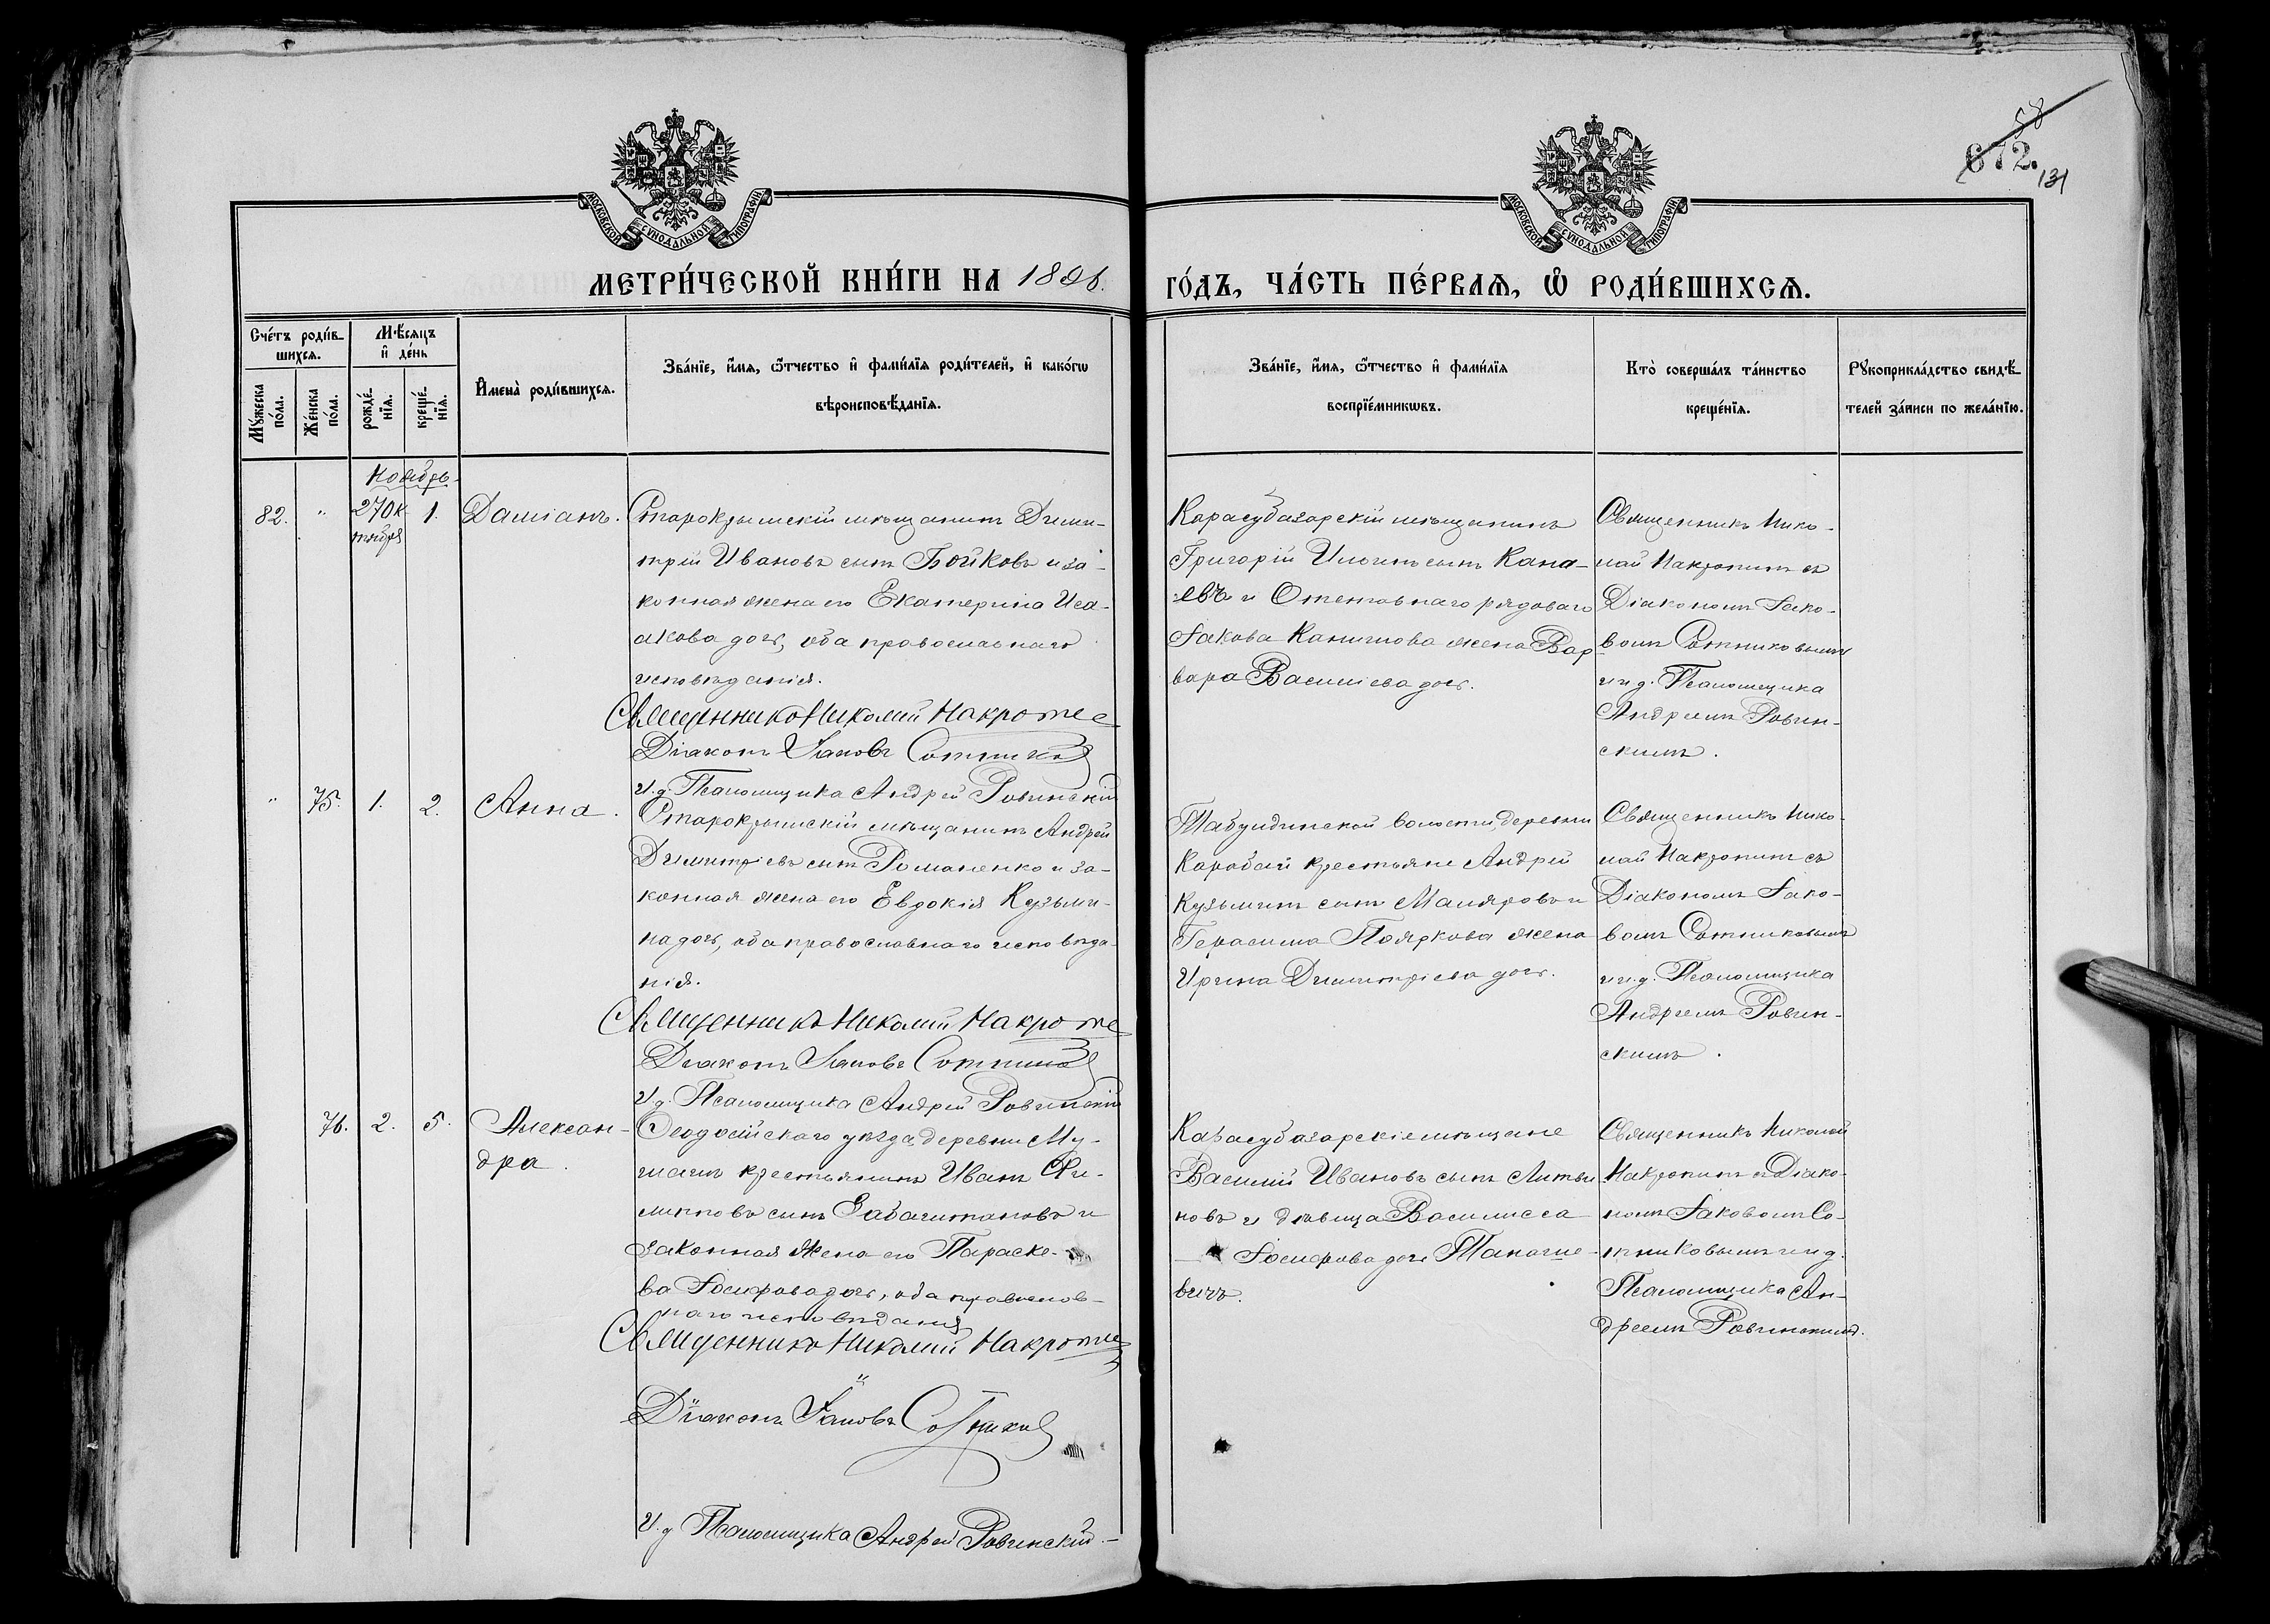 58
672.
131
МОСКОВСКОЙ СѴНОДАЛЬНОЙ ТИПОГРАФІИ
МОСКОВСКОЙ СѴНОДАЛЬНОЙ ТИПОГРАФІИ
МЕТРИ́ЧЕСКОЙ КНИ́ГИ НА 1896.
ГО́ДЪ, ЧА́СТЬ ПЕ́РВАѦ, Ѡ҆ РОДИ́ВШИХСѦ.
Сче́тъ роди́в-
шихсѧ.
Мꙋ́жеска по́ла.
Же́нска по́ла.
Мѣ́сѧцъ
и҆ де́нь
рожде́-
нїѧ.
креще́-
нїѧ.
И҆мена̀ роди́вшихсѧ.
Зва́нїе, и҆́мѧ, ѻ҆́тчество и҆ фами́лїѧ роди́телей, и҆ како́гѡ
вѣроисповѣ́данїѧ.
Зва́нїе, и҆́мѧ, ѻ҆́тчество и҆ фами́лїѧ
воспрїе́мникѡвъ.
Кто̀ соверша́лъ та́инство
креще́нїѧ.
Рꙋкоприкла́дство свидѣ́-
телей за́писи по жела́нїю.
Ноябрь
82.
"
27 Ок
тября
1.
Даміанъ.
Старокрымскій мѣщанинъ Дими-
трій Ивановъ сынъ Бойковъ и за-
конная жена его Екатерина Иса-
акова дочь, оба православнаго
исповѣданія.
Священникъ Николай Накропи
Діаконъ Іаковъ Сотников
И.д. Псаломщика Андрей Ровинскій
Карасубазарскій мѣщанинъ
Григорій Ильинъ сынъ Кана-
евъ и Отставнаго рядоваго
Іакова Каништова жена Вар
вара Василіева дочь.
Священникъ Нико-
лай Накропинъ съ
Діакономъ Іако-
вомъ Сотниковымъ
и и.д. Псаломщика
Андреемъ Ровин-
скимъ.
"
75.
1.
2.
Анна.
Старокрымскій мѣщанинъ Андрей
Димитріевъ сынъ Романенко и за-
конная жена его Евдокія Кузьми-
на дочь, оба православнаго исповѣда-
нія.
Священникъ Николай Накропи
Діаконъ Іаковъ Сотников
И.д. Псаломщика Андрей Ровинскій
Табулдинской волости, деревни
Карабай крестьяне Андрей
Кузьминъ сынъ Маляровъ и
Герасима Пояркова жена
Ирина Димитріева дочь.
Священникъ Нико-
лай Накропинъ съ
Діакономъ Іако-
вомъ Сотниковымъ
и и.д. Псаломщика
Андреемъ Ровин-
скимъ.
76.
2.
5.
Алексан-
дра.
Ѳеодосійскаго уѣзда деревни Му-
крестьянинъ Иванъ Фи-
липповъ сынъ и
законная жена его Параске-
ва Іосифова дочь, оба православ-
наго исповѣданія
Священникъ Николай Накропи
Діаконъ Іаковъ Сотников
И.д. Псаломщика Андрей Ровинскій.
Карасубазарскіе мѣщане
Василій Ивановъ сынъ Литви
новъ и дѣвица Василисса
Іосифова дочь Таначе-
вичъ.
Священникъ Николай
Накропинъ съ Діако-
номъ Іаковомъ Со-
тниковымъ и и.д.
Псаломщика Ан-
дреемъ Ровинскимъ.